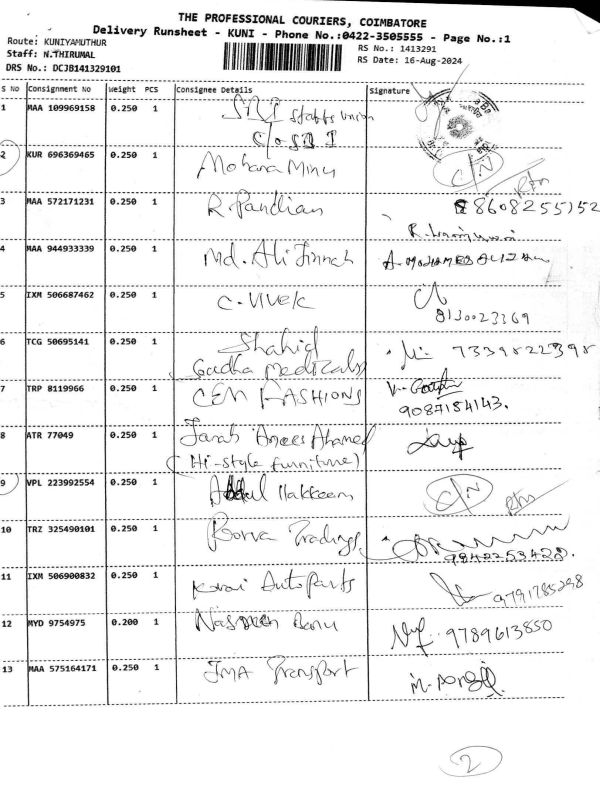 THE PROFESSIONAL COURIERS, COIMBATORE
Delivery Runsheet - KUNI - Phone No.:0422-3505555 - Page No.:1
Route: KUNIYAMUTHUR
RS No.: 1413291
Staff: N.THIRUMAL
RS Date: 16-Aug-2024
DRS No.: DCJB141329101
S NO Consignment No Weight PCS Consignee Details Signature
1 MAA 109969158 0.250 1 Staffs Union
C/o
2 KUR 696369465 0.250 1 Mohana Minu C/N Rtn
3 MAA 572171231 0.250 1 R. Pandian 8608255152
4 MAA 944933339 0.250 1 Md. Ali Jinnah
5 IXM 506687462 0.250 1 C. Vivek
8130023369
6 TCG 50695141 0.250 1 Shahid 7339822398
Medicals
7 TRP 8119966 0.250 1 FASHIONS
9087154143.
8 ATR 77049 0.250 1 Anees Ahamed
(Hi-style furniture)
9 VPL 223992554 0.250 1 Abdul Hakkeem C/N Rtn
10 TRZ 325490101 0.250 1 Poorva Tradings
9842253428.
11 IXM 506900832 0.250 1 Kovai Autoparts 9791785298
12 MYD 9754975 0.200 1 Nasreen Banu 9789613850
13 MAA 575164171 0.250 1 JMA Transport
2